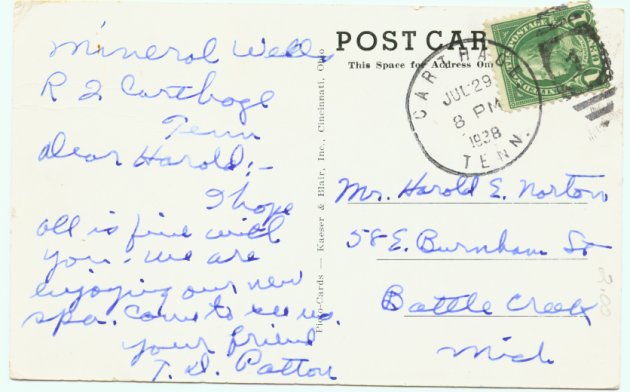 Mineral Wells
R 2 Carthage
Tenn
Dear Harold:-
I hope
all is fine with
you. we are
enjoying our new
spa. Come to see us.
your friend
T. D. Patton
Photo-Cards — Kaeser & Blair, Inc., Cincinnati, Ohio
POST CAR
This Space for Address On
CARTHAGE
JUL 29
8 PM
1938
TENN.
Mr. Harold E. Norton
58 E. Burnham St
Battle Creek
Mich